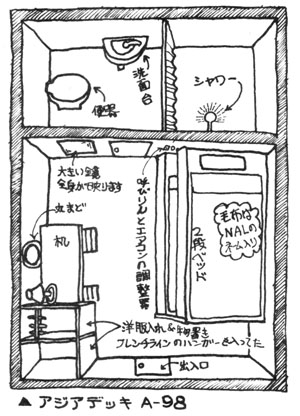 洗面台
便器
シャワー
大きい鏡
全身が映ります
丸まど
机
エアコンの調整器
2段ベッド
毛布は
NALの
ネーム入り
洋服入れ&物置き
フレンチラインのハンガーも入ってた
出入口
▲アジアデッキ A-98